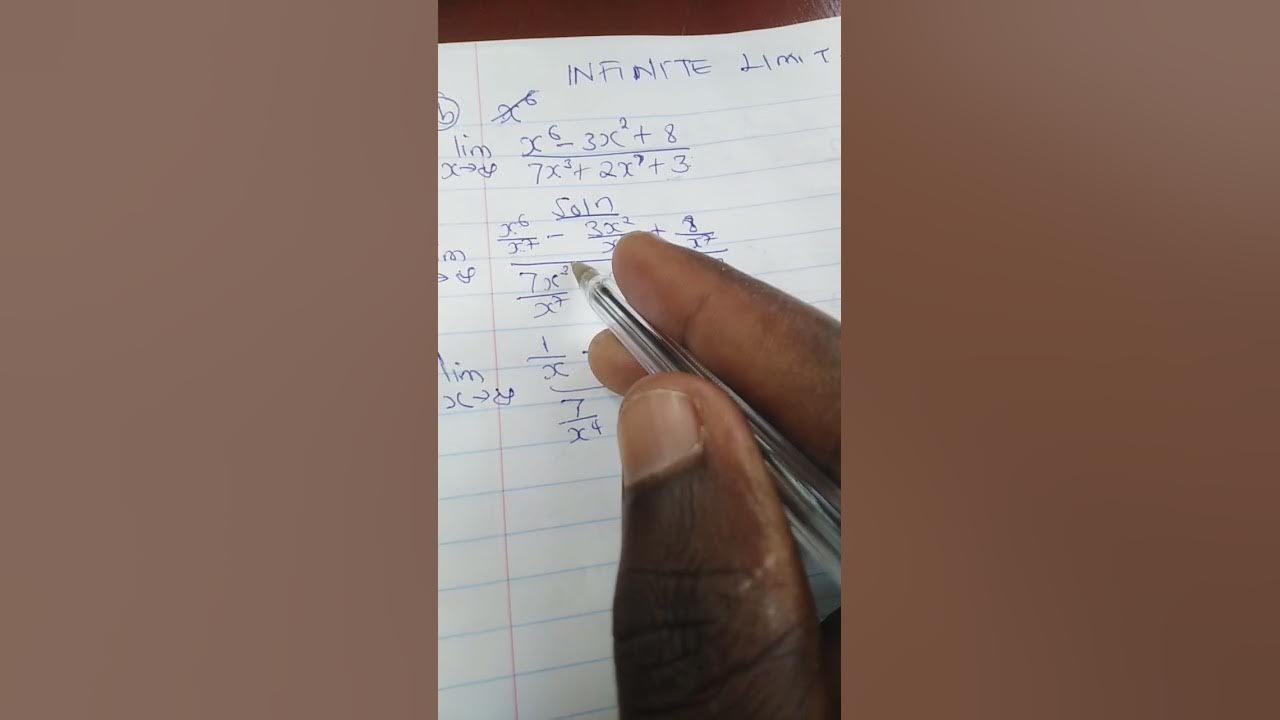 INFINITE LIMIT
b) x^6
lim x→∞ (x^6 - 3x^2 + 8) / (7x^3 + 2x^7 + 3)
Soln
x^6/x^7 - 3x^2/x + 8/x^7
7x^3/x^7
lim x→∞ 1/x -
7/x^4